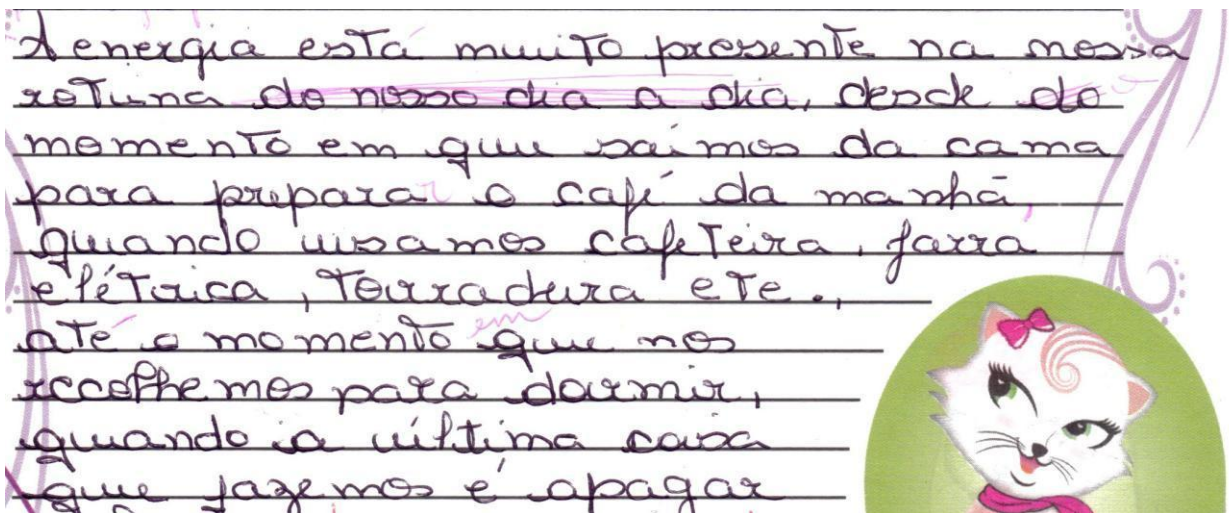 A energia está muito presente na nossa
rotina do nosso dia a dia, desde do
momento em que saimos da cama
para prepara o café da manhã,
quando usamos cafeteira, jarra
elétrica, torradura ete.,
até o momento em que nos
recolhemos para dormir,
quando a última coisa
que fazemos é apagar